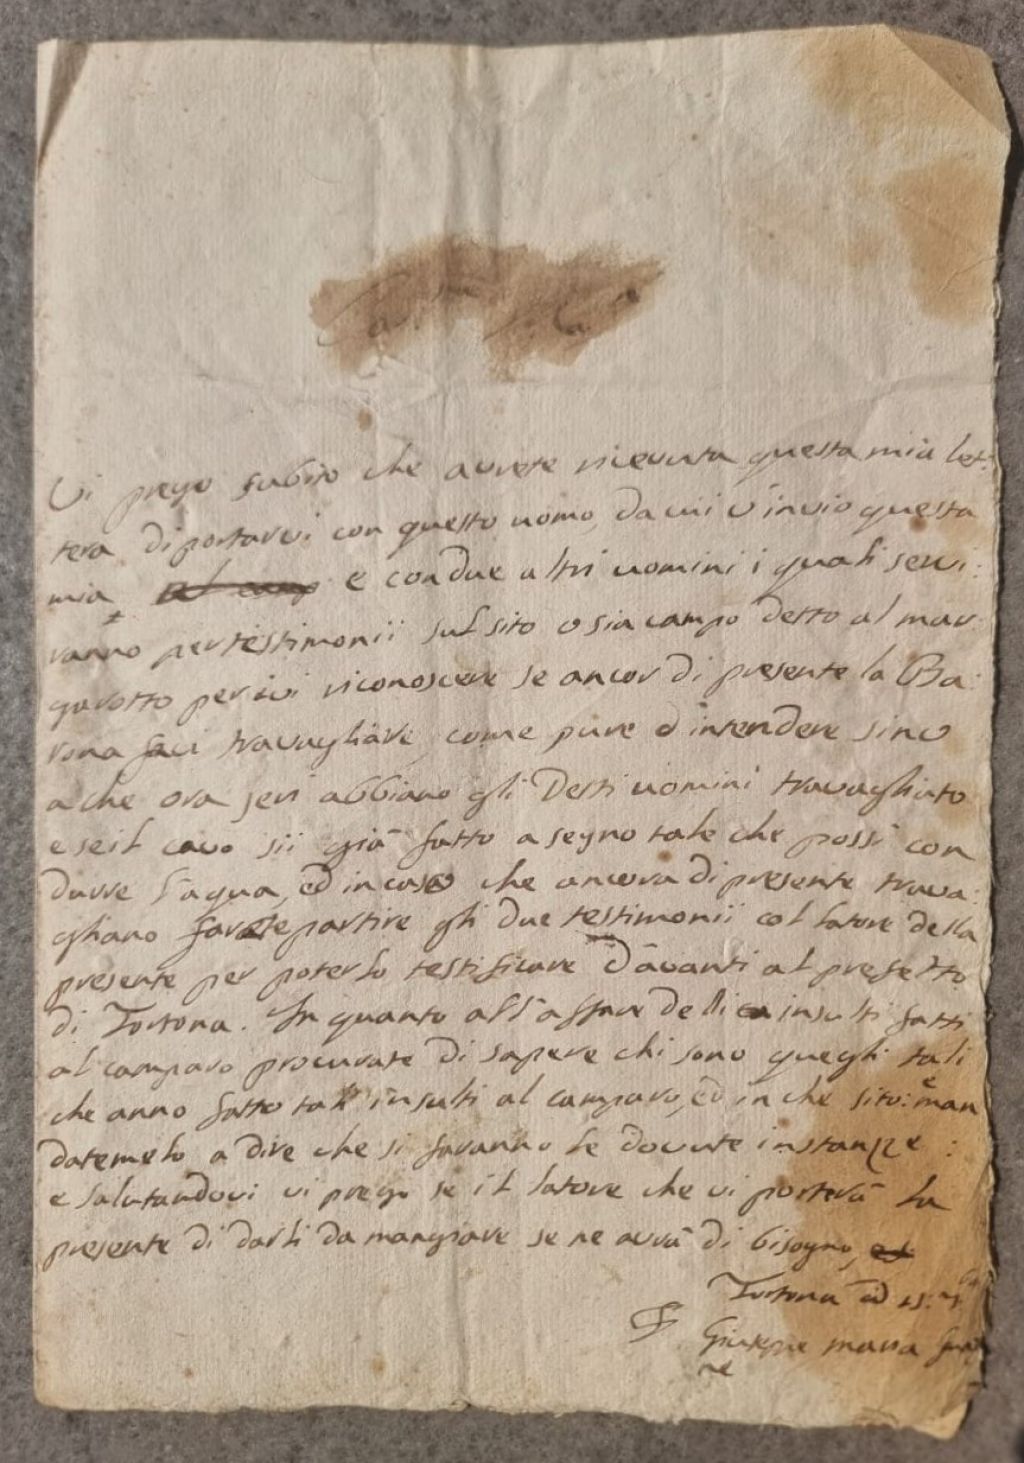 Vi prego subito che avrete ricevuta questa mia let:
tera di portarvi con questo uomo, da cui v'invio questa
mia e con due altri uomini i quali servi:
ranno per testimonii sul sito o sia campo detto al mar:
garotto per ivi riconoscere se ancor di presente la Ba:
rona faci travagliare come pure d'intendere sino
a che ora jeri abbiano gli detti uomini travagliato
e se il cavo sii già fatto a segno tale che possi con
durre l'aqua, ed in caso che ancora di presente trava:
gliano farete partire gli due testimonii col latore della
presente per poterlo testificare d'avanti al prefetto
di Tortona. In quanto all'affare delli insulti fatti
al camparo procurate di sapere chi sono quegli tali
che anno fatto tali insulti al camparo, ed in che sito: e man
datemelo a dire che si faranno le dovute instanze:
e salutandovi vi prego se il latore che vi porterà la
presente di darli da mangiare se ne avrà di bisogno,
Tortona
Giuseppe maria